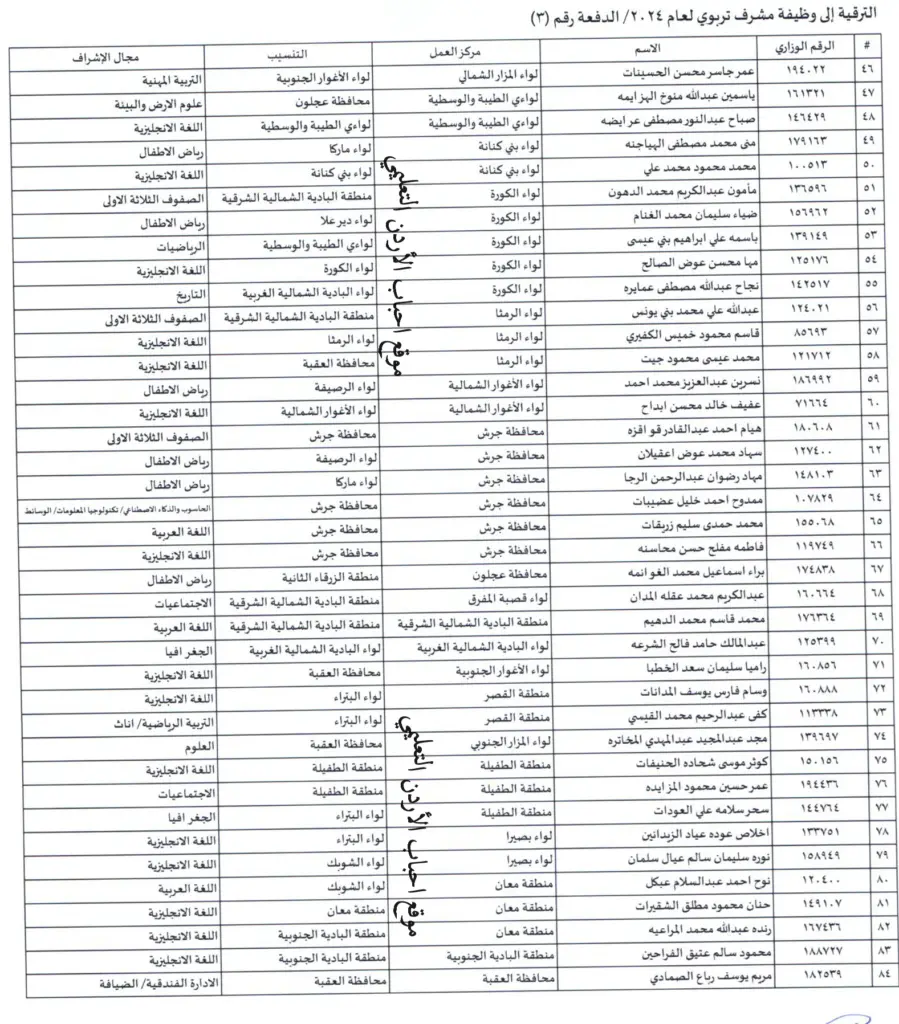 الترقية إلى وظيفة مشرف تربوي لعام ٢٠٢٤/ الدفعة رقم (٣)
# الرقم الوزاري الاسم مركز العمل التنسيب مجال الإشراف
٤٦ ١٩٤٠٢٢ عمر جاسر محسن الحسينات لواء المزار الشمالي لواء الأغوار الجنوبية التربية المهنية
٤٧ ١٦١٣٢١ ياسمين عبدالله منوخ الهزايمه لواءي الطيبة والوسطية محافظة عجلون علوم الارض والبيئة
٤٨ ١٤٦٤٢٩ صباح عبدالنور مصطفى عرايضه لواءي الطيبة والوسطية لواءي الطيبة والوسطية اللغة الانجليزية
٤٩ ١٧٩١٦٣ منى محمد مصطفى الهياجنه لواء بني كنانة لواء ماركا رياض الاطفال
٥٠ ١٠٠٥١٣ محمد محمود محمد علي لواء بني كنانة لواء بني كنانة اللغة الانجليزية
٥١ ١٣٦٥٩٦ مأمون عبدالكريم محمد الدهون لواء الكورة منطقة البادية الشمالية الشرقية الصفوف الثلاثة الاولى
٥٢ ١٥٦٩٦٢ ضياء سليمان محمد الغنام لواء الكورة لواء دير علا رياض الاطفال
٥٣ ١٣٩١٤٩ باسمه علي ابراهيم بني عيسى لواء الكورة لواءي الطيبة والوسطية الرياضيات
٥٤ ١٢٥١٧٦ مها محسن عوض الصالح لواء الكورة لواء الكورة اللغة الانجليزية
٥٥ ١٤٢٥١٧ نجاح عبدالله مصطفى عمايره لواء الكورة لواء البادية الشمالية الغربية التاريخ
٥٦ ١٢٤٠٢١ عبدالله علي محمد بني يونس لواء الرمثا منطقة البادية الشمالية الشرقية الصفوف الثلاثة الاولى
٥٧ ٨٥٦٩٣ قاسم محمود خميس الكفيري لواء الرمثا لواء الرمثا اللغة الانجليزية
٥٨ ١٢١٧١٢ محمد عيسى محمود جيت لواء الرمثا محافظة العقبة اللغة الانجليزية
٥٩ ١٨٦٩٩٢ نسرين عبدالعزيز محمد احمد لواء الأغوار الشمالية لواء الرصيفة رياض الاطفال
٦٠ ٧١٦٦٤ عفيف خالد محسن ابداح لواء الأغوار الشمالية لواء الأغوار الشمالية اللغة الانجليزية
٦١ ١٨٠٦٠٨ هيام احمد عبدالقادر قواقزه محافظة جرش محافظة جرش الصفوف الثلاثة الاولى
٦٢ ١٢٧٤٠٠ سهاد محمد عوض اعقيلان محافظة جرش لواء الرصيفة رياض الاطفال
٦٣ ١٤٨١٠٣ مهاد رضوان عبدالرحمن الرجا محافظة جرش لواء ماركا رياض الاطفال
٦٤ ١٠٧٨٢٩ ممدوح احمد خليل عضيبات محافظة جرش محافظة جرش الحاسوب والذكاء الاصطناعي/ تكنولوجيا المعلومات/ الوسائط
٦٥ ١٥٥٠٦٨ محمد حمدي سليم زريقات محافظة جرش محافظة جرش اللغة العربية
٦٦ ١١٩٧٤٩ فاطمه مفلح حسن محاسنه محافظة جرش محافظة جرش اللغة الانجليزية
٦٧ ١٧٤٨٣٨ براء اسماعيل محمد الغوانمه محافظة عجلون منطقة الزرقاء الثانية رياض الاطفال
٦٨ ١٦٠٦٦٤ عبدالكريم محمد عقله المدان لواء قصبة المفرق منطقة البادية الشمالية الشرقية الاجتماعيات
٦٩ ١٧٦٣٦٤ محمد قاسم محمد الدهيم منطقة البادية الشمالية الشرقية منطقة البادية الشمالية الشرقية اللغة العربية
٧٠ ١٢٥٣٩٩ عبدالمالك حامد فالح الشرعه لواء البادية الشمالية الغربية لواء البادية الشمالية الغربية الجغرافيا
٧١ ١٦٠٨٥٦ راميا سليمان سعد الخطبا لواء الأغوار الجنوبية محافظة العقبة اللغة الانجليزية
٧٢ ١٦٠٨٨٨ وسام فارس يوسف المدانات منطقة القصر لواء البتراء اللغة الانجليزية
٧٣ ١١٣٣٣٨ كفى عبدالرحيم محمد القيسي منطقة القصر لواء البتراء التربية الرياضية/ اناث
٧٤ ١٣٩٦٩٧ مجد عبدالمجيد عبدالمهدي المخاتره لواء المزار الجنوبي محافظة العقبة العلوم
٧٥ ١٥٠١٥٦ كوثر موسى شحاده الحنيفات منطقة الطفيلة منطقة الطفيلة اللغة الانجليزية
٧٦ ١٩٤٤٣٦ عمر حسين محمود المزايده منطقة الطفيلة منطقة الطفيلة الاجتماعيات
٧٧ ١٤٤٧٦٤ سحر سلامه علي العودات منطقة الطفيلة لواء البتراء الجغرافيا
٧٨ ١٣٣٧٥١ اخلاص عوده عياد الزيدانين لواء بصيرا لواء البتراء اللغة الانجليزية
٧٩ ١٥٨٩٤٩ نوره سليمان سالم عيال سلمان لواء بصيرا لواء الشوبك اللغة الانجليزية
٨٠ ١٢٠٤٠٠ نوح احمد عبدالسلام عبكل منطقة معان لواء الشوبك اللغة العربية
٨١ ١٤٩١٠٧ حنان محمود مطلق الشقيرات منطقة معان منطقة معان اللغة الانجليزية
٨٢ ١٦٧٤٣٦ رنده عبدالله محمد المراعيه منطقة معان منطقة البادية الجنوبية اللغة الانجليزية
٨٣ ١٨٨٧٢٧ محمود سالم عتيق الفراحين منطقة البادية الجنوبية منطقة البادية الجنوبية اللغة الانجليزية
٨٤ ١٨٢٥٣٩ مريم يوسف رباع الصمادي محافظة العقبة محافظة العقبة الادارة الفندقية/ الضيافة
موقع احباب الأردن التعليمي
موقع احباب الأردن التعليمي